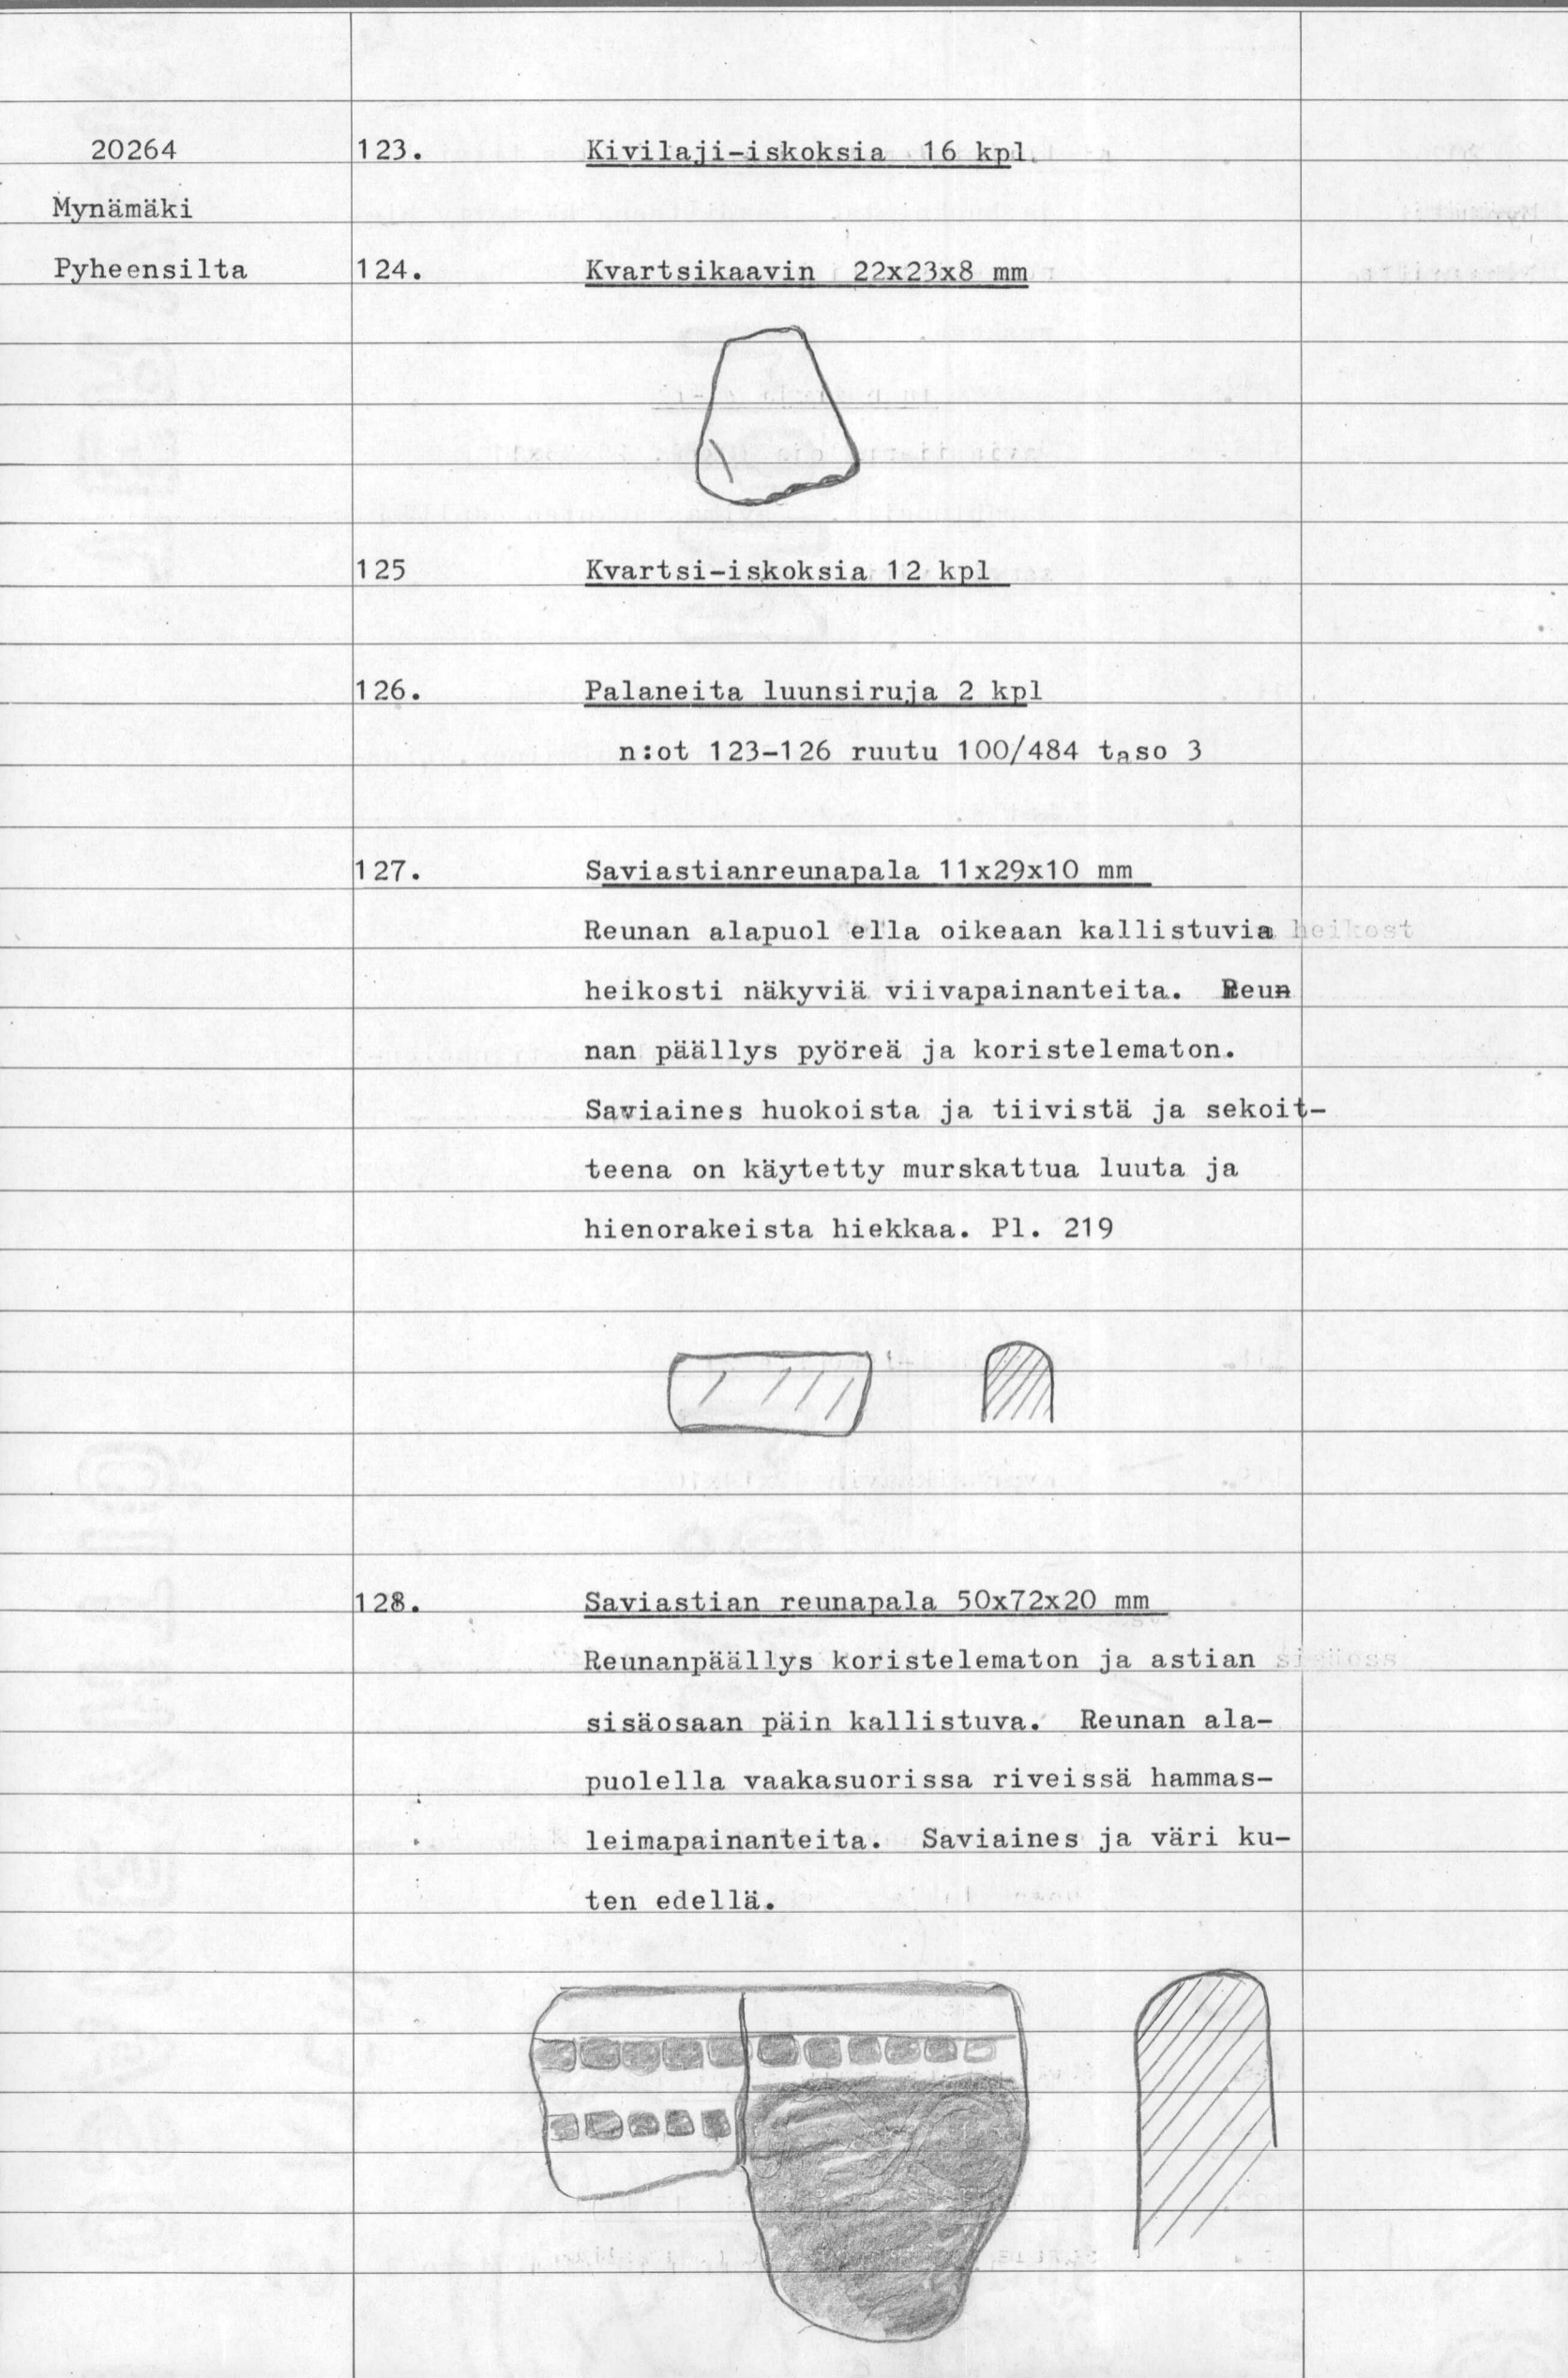 20264 123. Kivilaji-iskoksia 16 kpl
Mynämäki
Pyheensilta 124. Kvartsikaavin 22x23x8 mm
125 Kvartsi-iskoksia 12 kpl
126. Palaneita luunsiruja 2 kpl
n:ot 123-126 ruutu 100/484 taso 3
127. Saviastianreunapala 11x29x10 mm
Reunan alapuol ella oikeaan kallistuvia heikost
heikosti näkyviä viivapainanteita. Reun
nan päällys pyöreä ja koristelematon.
Saviaines huokoista ja tiivistä ja sekoit-
teena on käytetty murskattua luuta ja
hienorakeista hiekkaa. Pl. 219
128. Saviastian reunapala 50x72x20 mm
Reunanpäällys koristelematon ja astian
sisäosaan päin kallistuva. Reunan ala-
puolella vaakasuorissa riveissä hammas-
leimapainanteita. Saviaines ja väri ku-
ten edellä.